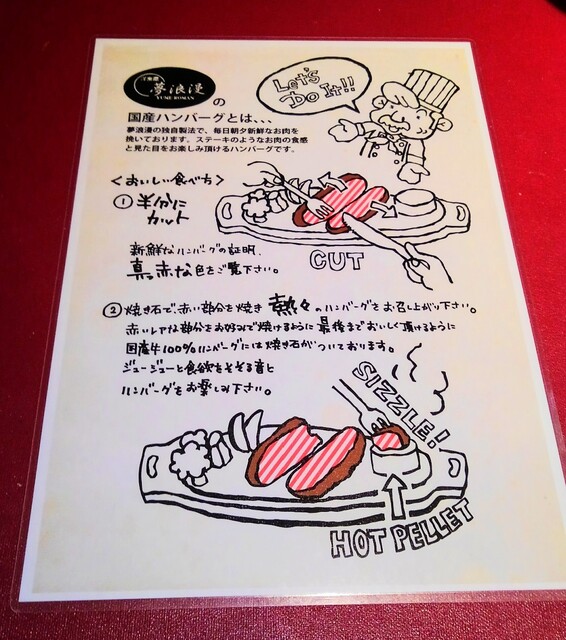 夢浪漫
YUME ROMAN
の
Let's
Do It!!
国産ハンバーグとは、、、
夢浪漫の独自製法で、毎日朝夕新鮮なお肉を
挽いております。ステーキのようなお肉の食感
と見た目をお楽しみ頂けるハンバーグです。
<おいしい食べ方>
①半分に
カット
CUT
新鮮なハンバーグの証明、
真っ赤な色をご覧下さい。
②焼き石で、赤い部分を焼き 熱々のハンバーグをお召し上がり下さい。
赤いレアな部分をお好みで焼けるように 最後までおいしく頂けるように
国産牛100%ハンバーグには焼き石がついております。
ジュージューと食欲をそそる音と
ハンバーグをお楽しみ下さい。
SIZZLE!
HOT PELLET